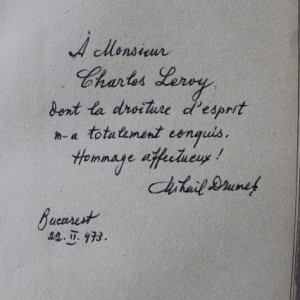 À Monsieur
Charles Leroy,
dont la droiture d'esprit
m-a totalement conquis.
Hommage affectueux!
Mihail Drumeș
Bucarest
22. II. 973.